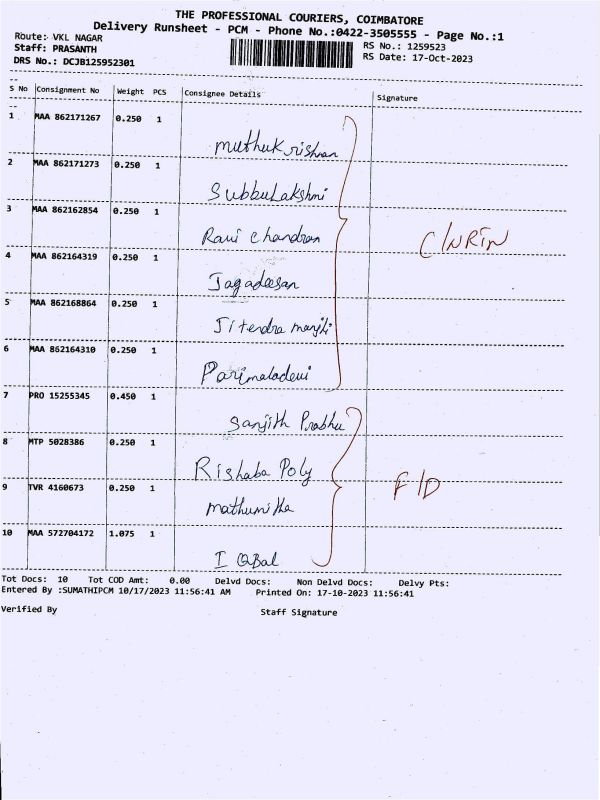 THE PROFESSIONAL COURIERS, COIMBATORE
Delivery Runsheet - PCM - Phone No.:0422-3505555 - Page No.:1
Route: VKL NAGAR
RS No.: 1259523
Staff: PRASANTH
RS Date: 17-Oct-2023
DRS No.: DCJB125952301
S No Consignment No Weight PCS Consignee Details Signature
1 MAA 862171267 0.250 1
Muthukrishnan
2 MAA 862171273 0.250 1
Subbulakshmi
3 MAA 862162854 0.250 1
Ravi Chandran
C/NRIN
4 MAA 862164319 0.250 1
Jagadeesan
5 MAA 862168864 0.250 1
Jitendra
6 MAA 862164310 0.250 1
Parimaladevi
7 PRO 15255345 0.450 1
Sanjith Prabhu
8 MTP 5028386 0.250 1
Rishaba Poly
9 TVR 4160673 0.250 1
F/D
Mathumitha
10 MAA 572704172 1.075 1
IQBal
Tot Docs: 10 Tot COD Amt: 0.00 Delvd Docs: Non Delvd Docs: Delvy Pts:
Entered By :SUMATHIPCM 10/17/2023 11:56:41 AM Printed On: 17-10-2023 11:56:41
Verified By Staff Signature